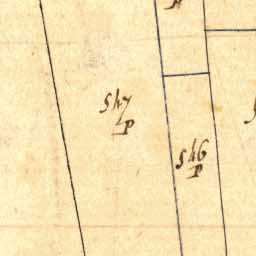 547
P
546
P